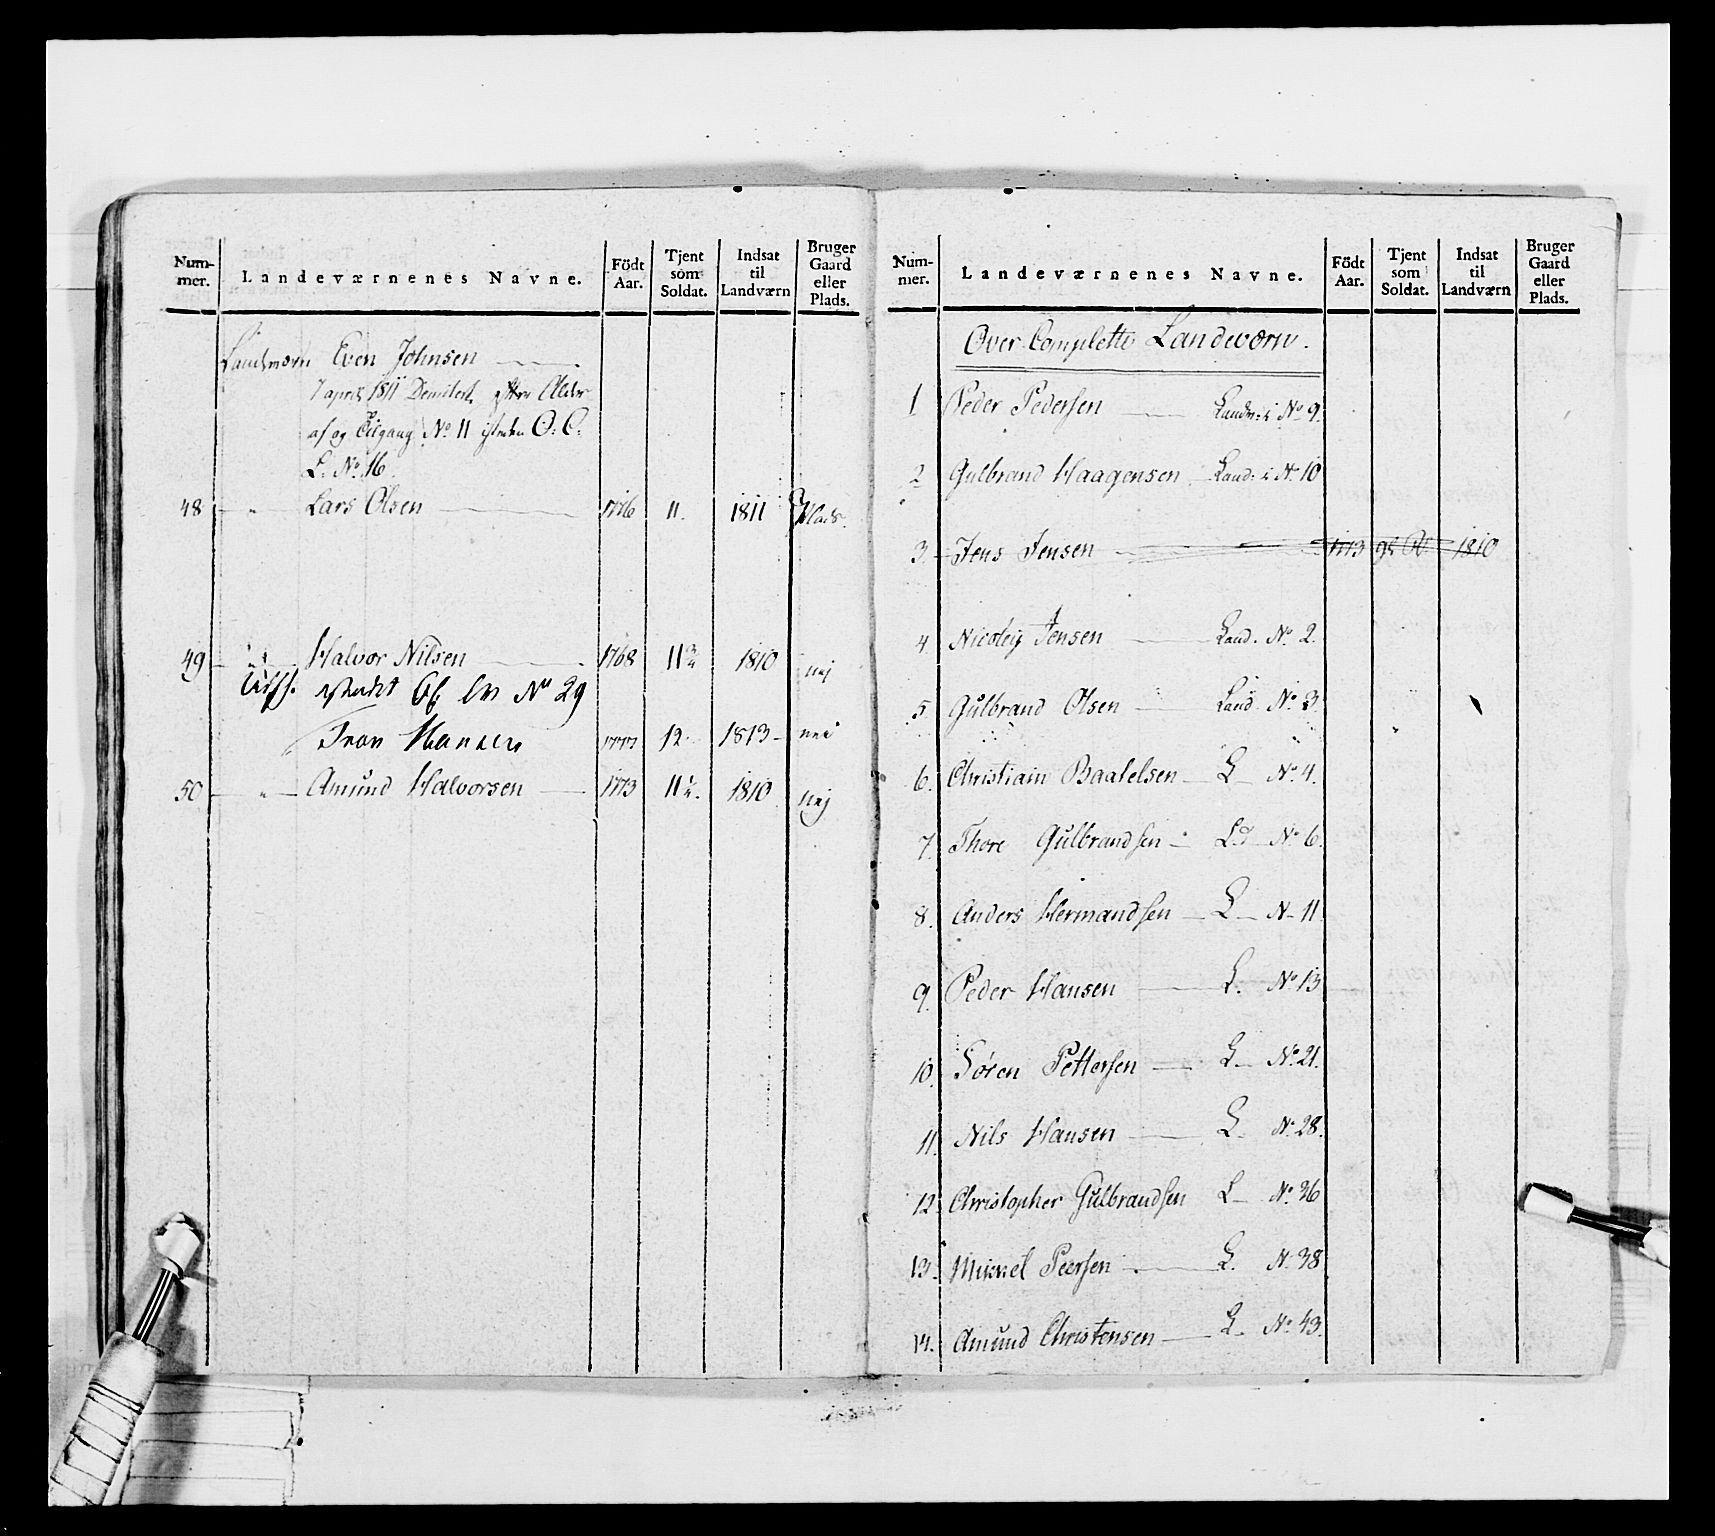 Num-mer. Landeværnenes Navne. Födt Aar. Tjent som Soldat. Indsat til Landværn Bruger Gaard eller Plads.
Landværn Even Johnsen
7 april 1811 Dimitert Alder
af og Tilgang No 11 O: C:
L. No 16.
48 " Lars Olsen 1776 11. 1811 Plads.
49 " Halvor Nilsen 1768 11 3/4 1810 nej
No 29
Tron Hansen 1777 12 1813 nei
50 " Amund Halvorsen 1773 11 1/2. 1810 nej
Num-mer. Landeværnenes Navne. Födt Aar. Tjent som Soldat. Indsat til Landværn Bruger Gaard eller Plads.
Over Complette Landeværn.
1 Peder Pedersen Landv: i No 9.
2 Gulbrand Haagensen Land: i No 10
3 Jens Jensen 1773 1810
4 Nicolay Jensen Land. No 2.
5 Gulbrand Olsen Land No 3
6. Christiain Baalelsen L No 4.
7. Thore Gulbrandsen L No 6.
8. Anders Hermandsen L N 11
9. Peder Hansen L. No 13
10. Sören Pettersen L No 21.
11. Nils Hansen L. No 28.
12. Christopher Gulbrandsen L No 36
13. Mikkel Peersen L. N. 38
14. Amund Christensen L. No 43.